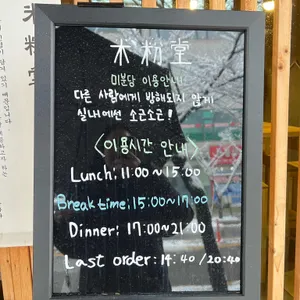 米粉堂
미분당 이용안내
다른 사람에게 방해되지 않게
실내에선 소근소근!
<이용시간 안내>
Lunch: 11:00~15:00
Break time: 15:00~17:00
Dinner: 17:00~21:00
Last order: 14:40/20:40